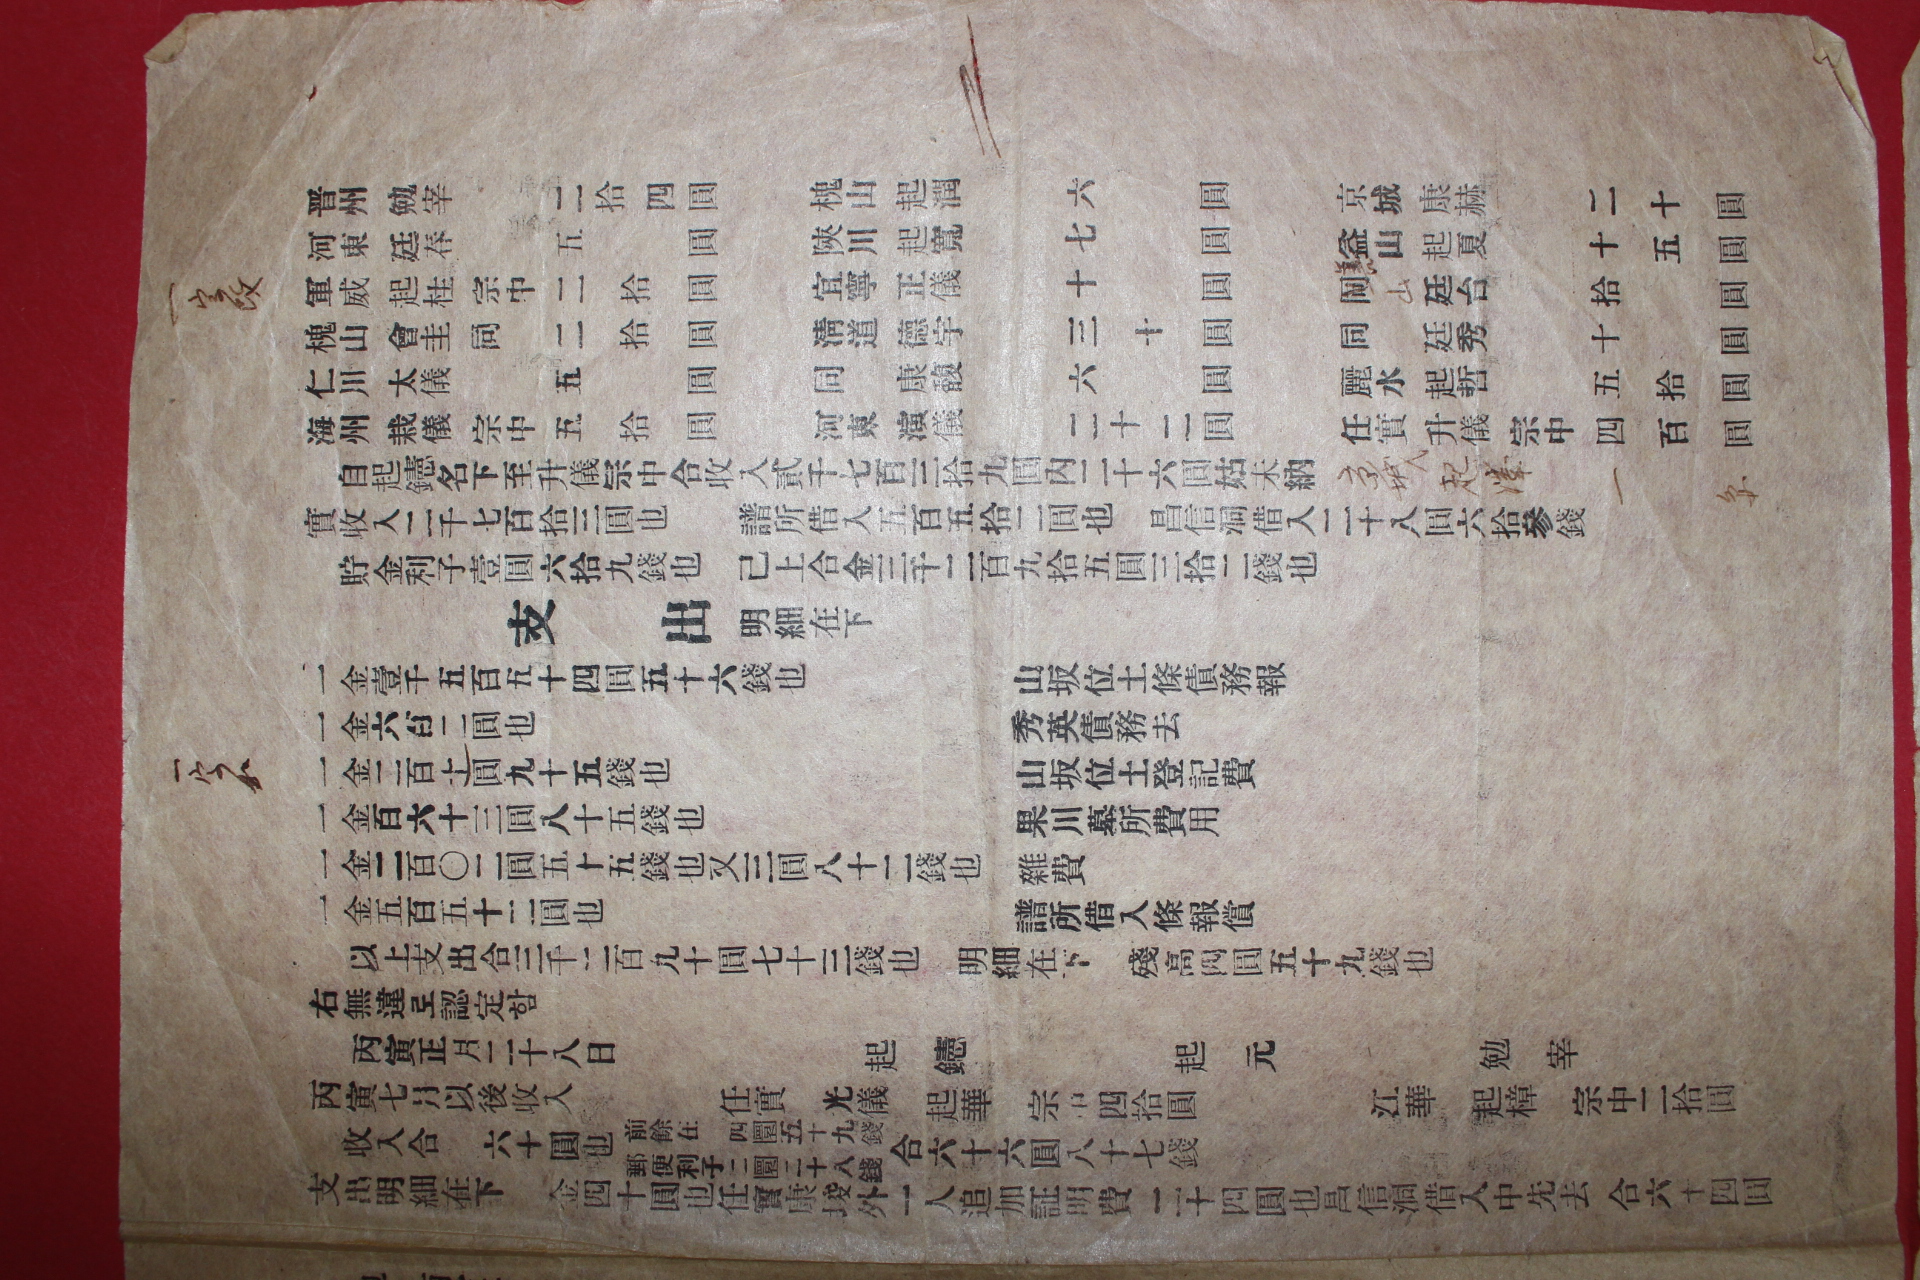 晋州 勉宰 二拾四圓 槐山 起潤 六圓 京城 康赫 二十圓
河東 廷春 五圓 陜川 起寬 七圓 益山 起夏 十五圓
軍威 起桂 宗中 二拾圓 宜寧 正儀 十圓 廷台 拾圓
槐山 會圭 同 二拾圓 淸道 德宇 三十圓 同 廷秀 十圓
仁川 太儀 五圓 同 康馥 六圓 麗水 起哲 五拾圓
海州 栽儀 宗中 五拾圓 河東 濱儀 二十二圓 任實 升儀 宗中 四百圓
自起鑢名下至升儀宗中合收入貳千七百二拾九圓內二十六圓姑未納
實收入二千七百拾三圓也 譜所借入五百五拾二圓也 昌信洞借入二十八圓六拾參錢
貯金利子壹圓六拾九錢也 已上合金三千二百九拾五圓三拾二錢也
支出 明細在下
一金壹千五百五十四圓五十六錢也 山坂位土條債務報
一金六百二圓也 秀英債務去
一金二百七圓九十五錢也 山坂位土登記費
一金百六十三圓八十五錢也 果川墓所費用
一金二百〇二圓五十五錢也又三圓八十二錢也 雜費
一金五百五十二圓也 譜所借入條報償
以上支出合三千二百九十圓七十三錢也 明細在下 殘高四圓五十九錢也
右無違로認定함
丙寅正月二十八日 起鑢 起元 勉宰
丙寅七月以後收入 任實 光儀 起華 宗中四拾圓 江華 起樟 宗中二拾圓
收入合 六十圓也 前餘在 四圓五十九錢 郵便利子二圓二十八錢 合六十六圓八十七錢
支出明細在下 金四十圓也任實康垵外一人追加証明費 二十四圓也昌信洞借入中先去 合六十四圓